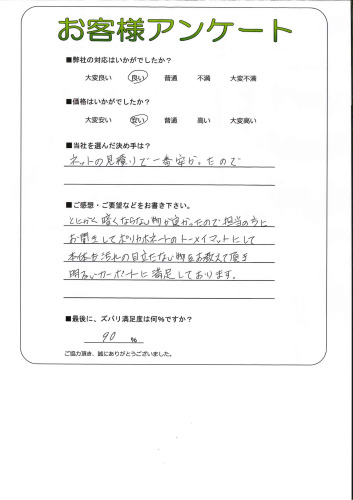 お客様アンケート
■弊社の対応はいかがでしたか？
大変良い 良い 普通 不満 大変不満
■価格はいかがでしたか？
大変安い 安い 普通 高い 大変高い
■当社を選んだ決め手は？
ネットの見積りで一番安かったので
■ご感想・ご要望などをお書き下さい。
とにかく暗くならない物が良かったので担当の方に
お聞きしてポリカボネートのトーメイマットにして
本体も汚れの目立たない物をお教えて頂き
明るいカーポートに満足しております。
■最後に、ズバリ満足度は何％ですか？
90 ％
ご協力頂き、誠にありがとうございました。